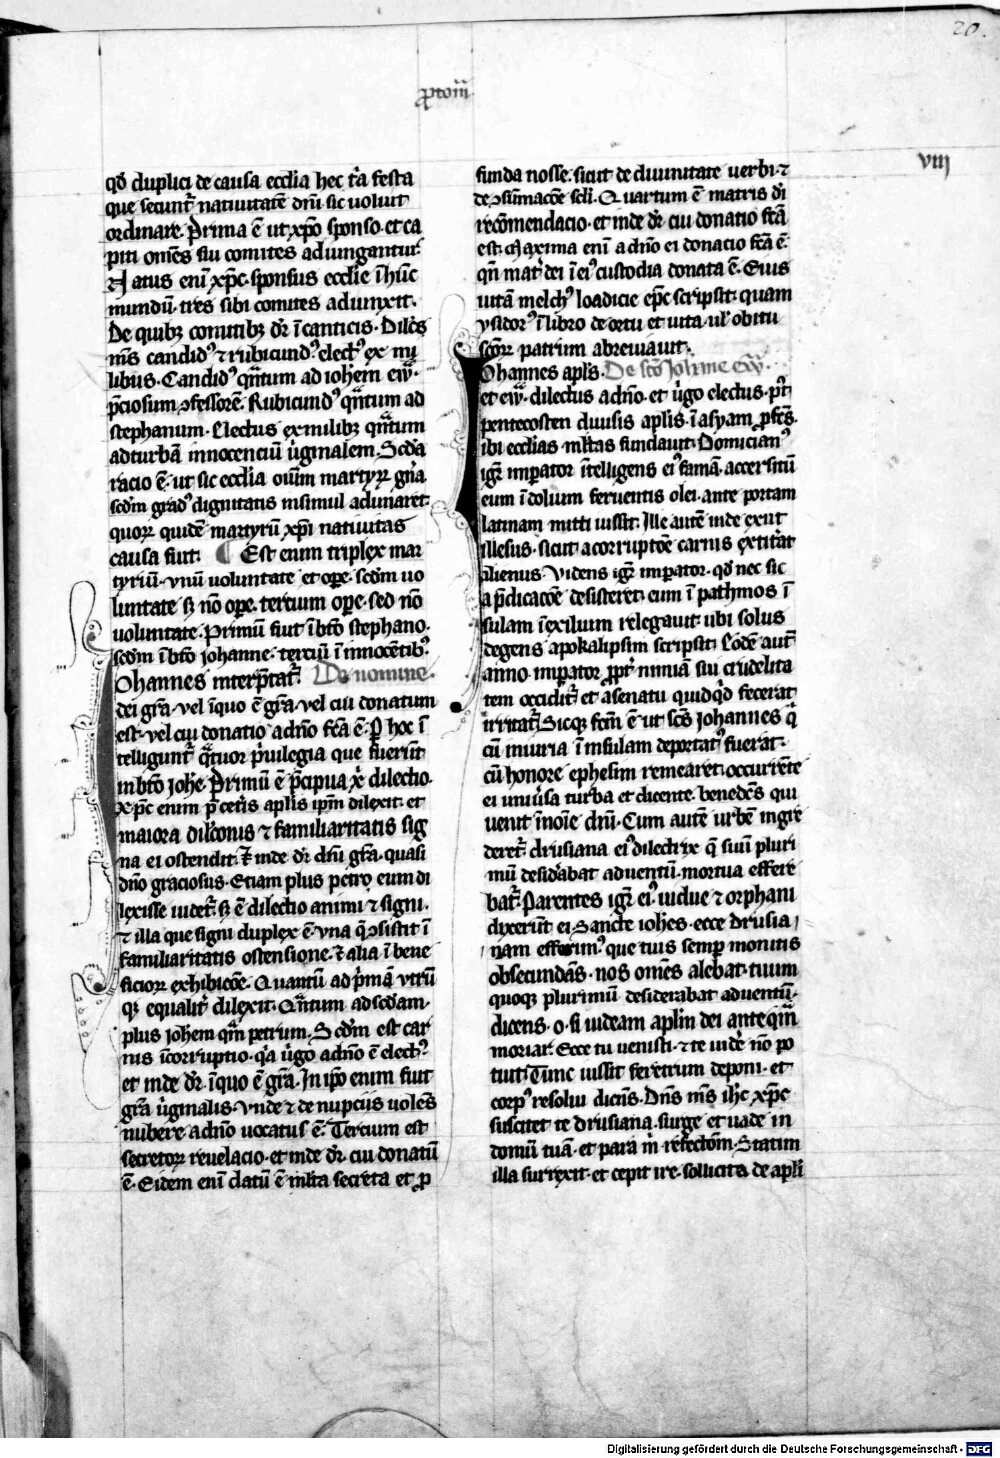 20.
viij
qd duplici de causa ecclia hec tria festa
que secuntr natiuitatē dnī sic uoluit
ordinare. Prima ē ut xpo sponso et ca
piti omēs sui comites adiungantur.
Natus enī xpc sponsus ecclie ī hūc
mundū. tres sibi comites adunxit.
De quibz comitibz dr ī canticis. Dilcs
mīs candid9 et rubicund9. elect9 ex mi
libus. Candid9 qntum ad iohem ew.
pciosum ɔfessorē. Rubicund9 qntum ad
stephanum. Electus ex milibz qntum
ad turbā innocenciū uirginalem. Scda
racio ē. ut sic ecclia oium martyrꝝ gna
scdm grad9 dignitatis insimul adunaret
quorꝝ quidē martyrū xpi natiuitas
causa fuit. Est enim triplex mar
tyriū. vnū uoluntate et ope. scdm uo
luntate sz nō ope. tercium ope. sed nō
uoluntate. Primū fuit ī bto stephano.
scdm ī bto johanne. terciū ī innocētib9.
Johannes interptatr. De nomine.
dei gra. vel ī quo ē gra. vel cui donatum
est. vel cui donatio a dno fca ē. p hoc ī
telliguntr qtuor priuilegia que fuerūt
in bto johe. Primū ē pcipua xi dilectio.
xpc enim p ceteris aplis ipm dilexit. et
maiora dilcōnis et familiaritatis sig
na ei ostendit. et inde dr dnī gra. quasi
dno graciosus. Etiam plus petro eum di
lexisse uidetr. sz ē dilectio animi et signi.
et illa que signi duplex ē. vna q ɔsistit ī
familiaritatis ostensione. et alia ī bene
ficiorꝝ exhibicōe. Quantū ad primā vtrū
qz equalitr dilexit. Qntum ad scdam.
plus johem qm petrum. Scdm est car
nis īcorruptio. qa uirgo a dno ē elect9.
et inde dr. ī quo ē gra. In ipo enim fuit
gra uirginalis. vnde et de nupciis uolēs
nubere a dno uocatus ē. Tercium est
secretorꝝ reuelacio. et inde dr. cui donatū
ē. Eidem enī datū ē mlta secreta et p
funda nosse. sicut de diuinitate uerbi. et
de ɔsumacōe scli. Quartum ē matris di
recōmendacio. et inde dr cui donatio fcā
est. Maxima enī a dno ei donacio fcā ē.
qn mat dei ī ei9 custodia donata ē. Eius
uitā melch9 loadicie epc scripsit. quam
ysidor9 ī libro de ortu et uita. ul obitu
scorꝝ patrum abreuiauit.
Johannes aplis. De sco Johanne ew.
et ew. dilectus a dno. et uirgo electus. pt
pentecosten diuisis aplis. ī asyam pfcs.
ibi ecclias mltas fundauit. Domician9
igr imperator ītelligens ei9 famā. accersitū
eum ī dolium feruentis olei. ante portam
latinam mitti iussit. Ille autē inde exiit
illesus. sicut a corruptōe carnis extiterat
alienus. Videns igr imperator. qd nec sic
a pdicacōe desisteret. eum ī pathmos ī
sulam ī exilium relegauit. ubi solus
degens apokalipsim scripsit. Eodē autē
anno. imperator ppt nimiā sui crudelita
tem occiditr. et a senatu quidqd fecerat
irritatr. Sicqz fcm ē ut scs Johannes q
cū iniuria ī insulam deportat9 fuerat.
cū honore ephesim remearet. occurrēte
ei uniuersa turba et dicente. benedcs qui
uenit ī noīe dnī. Cum autē urbē ingre
deretr. drusiana ei9 dilectrix q sui pluri
mū desiderabat aduentū. mortua effere
batr. Parentes igr ei9. uidue et orphani
dixerūt ei. Sancte iohes. ecce drusia
nam efferim9. que tuis semp monitis
obsecundās. nos omēs alebat. tuum
quoqz plurimū desiderabat aduentū.
dicens. o. si uideam aplm dei anteqm
moriar. Ecce tu uenisti. et te uidere nō po
tuit. Tunc iussit feretrum deponi. et
corp9 resolui dicēs. Dns ms ihc xpc
suscitet te drusiana. surge et uade in
domū tuā. et para mi refectōem. Statim
illa surrexit. et cepit ire. sollicita de apli
Digitalisierung gefördert durch die Deutsche Forschungsgemeinschaft - DFG